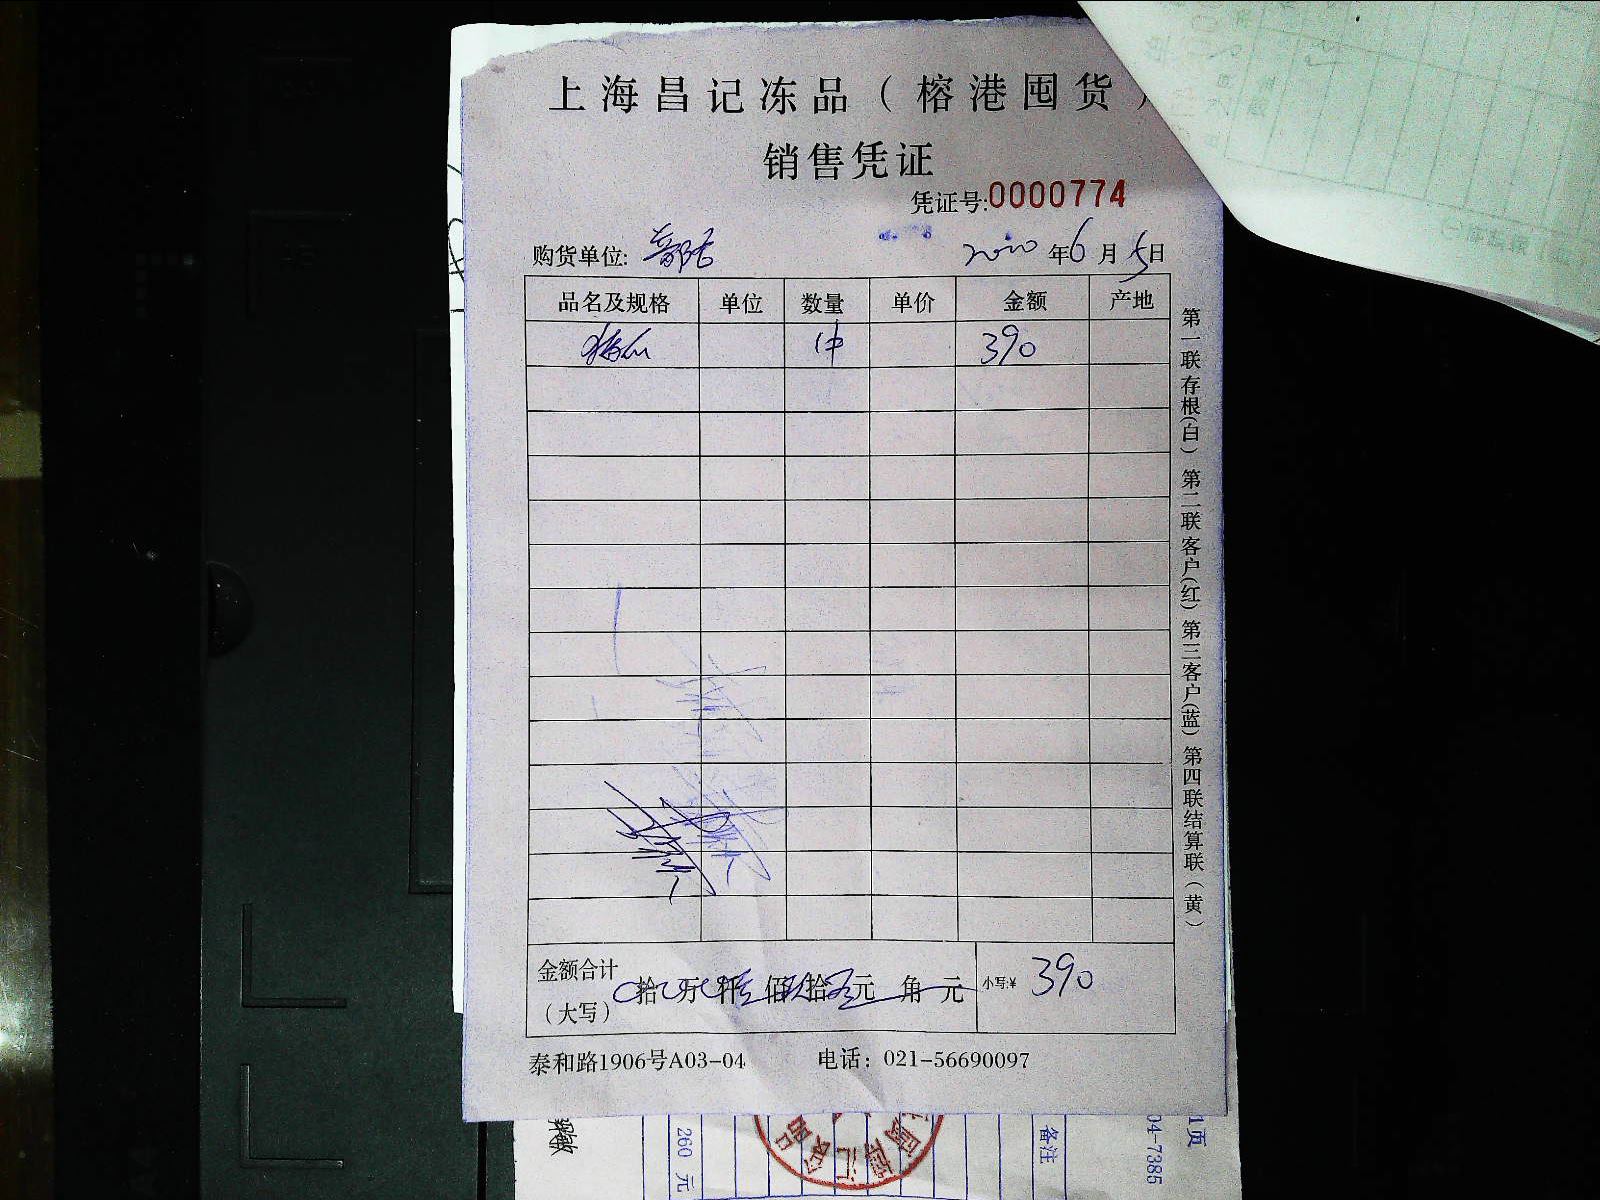 上海昌记冻品（榕港囤货）
销售凭证
凭证号:0000774
购货单位: 2020年6月5日
品名及规格 单位 数量 单价 金额 产地
1件 390
金额合计
（大写）
拾 万 仟 佰 拾 元 角 元 小写:¥ 390
泰和路1906号A03-04 电话: 021-56690097
第一联存根(白) 第二联客户(红) 第三客户(蓝) 第四联结算联(黄)
260 元
备注
04-7385
1页